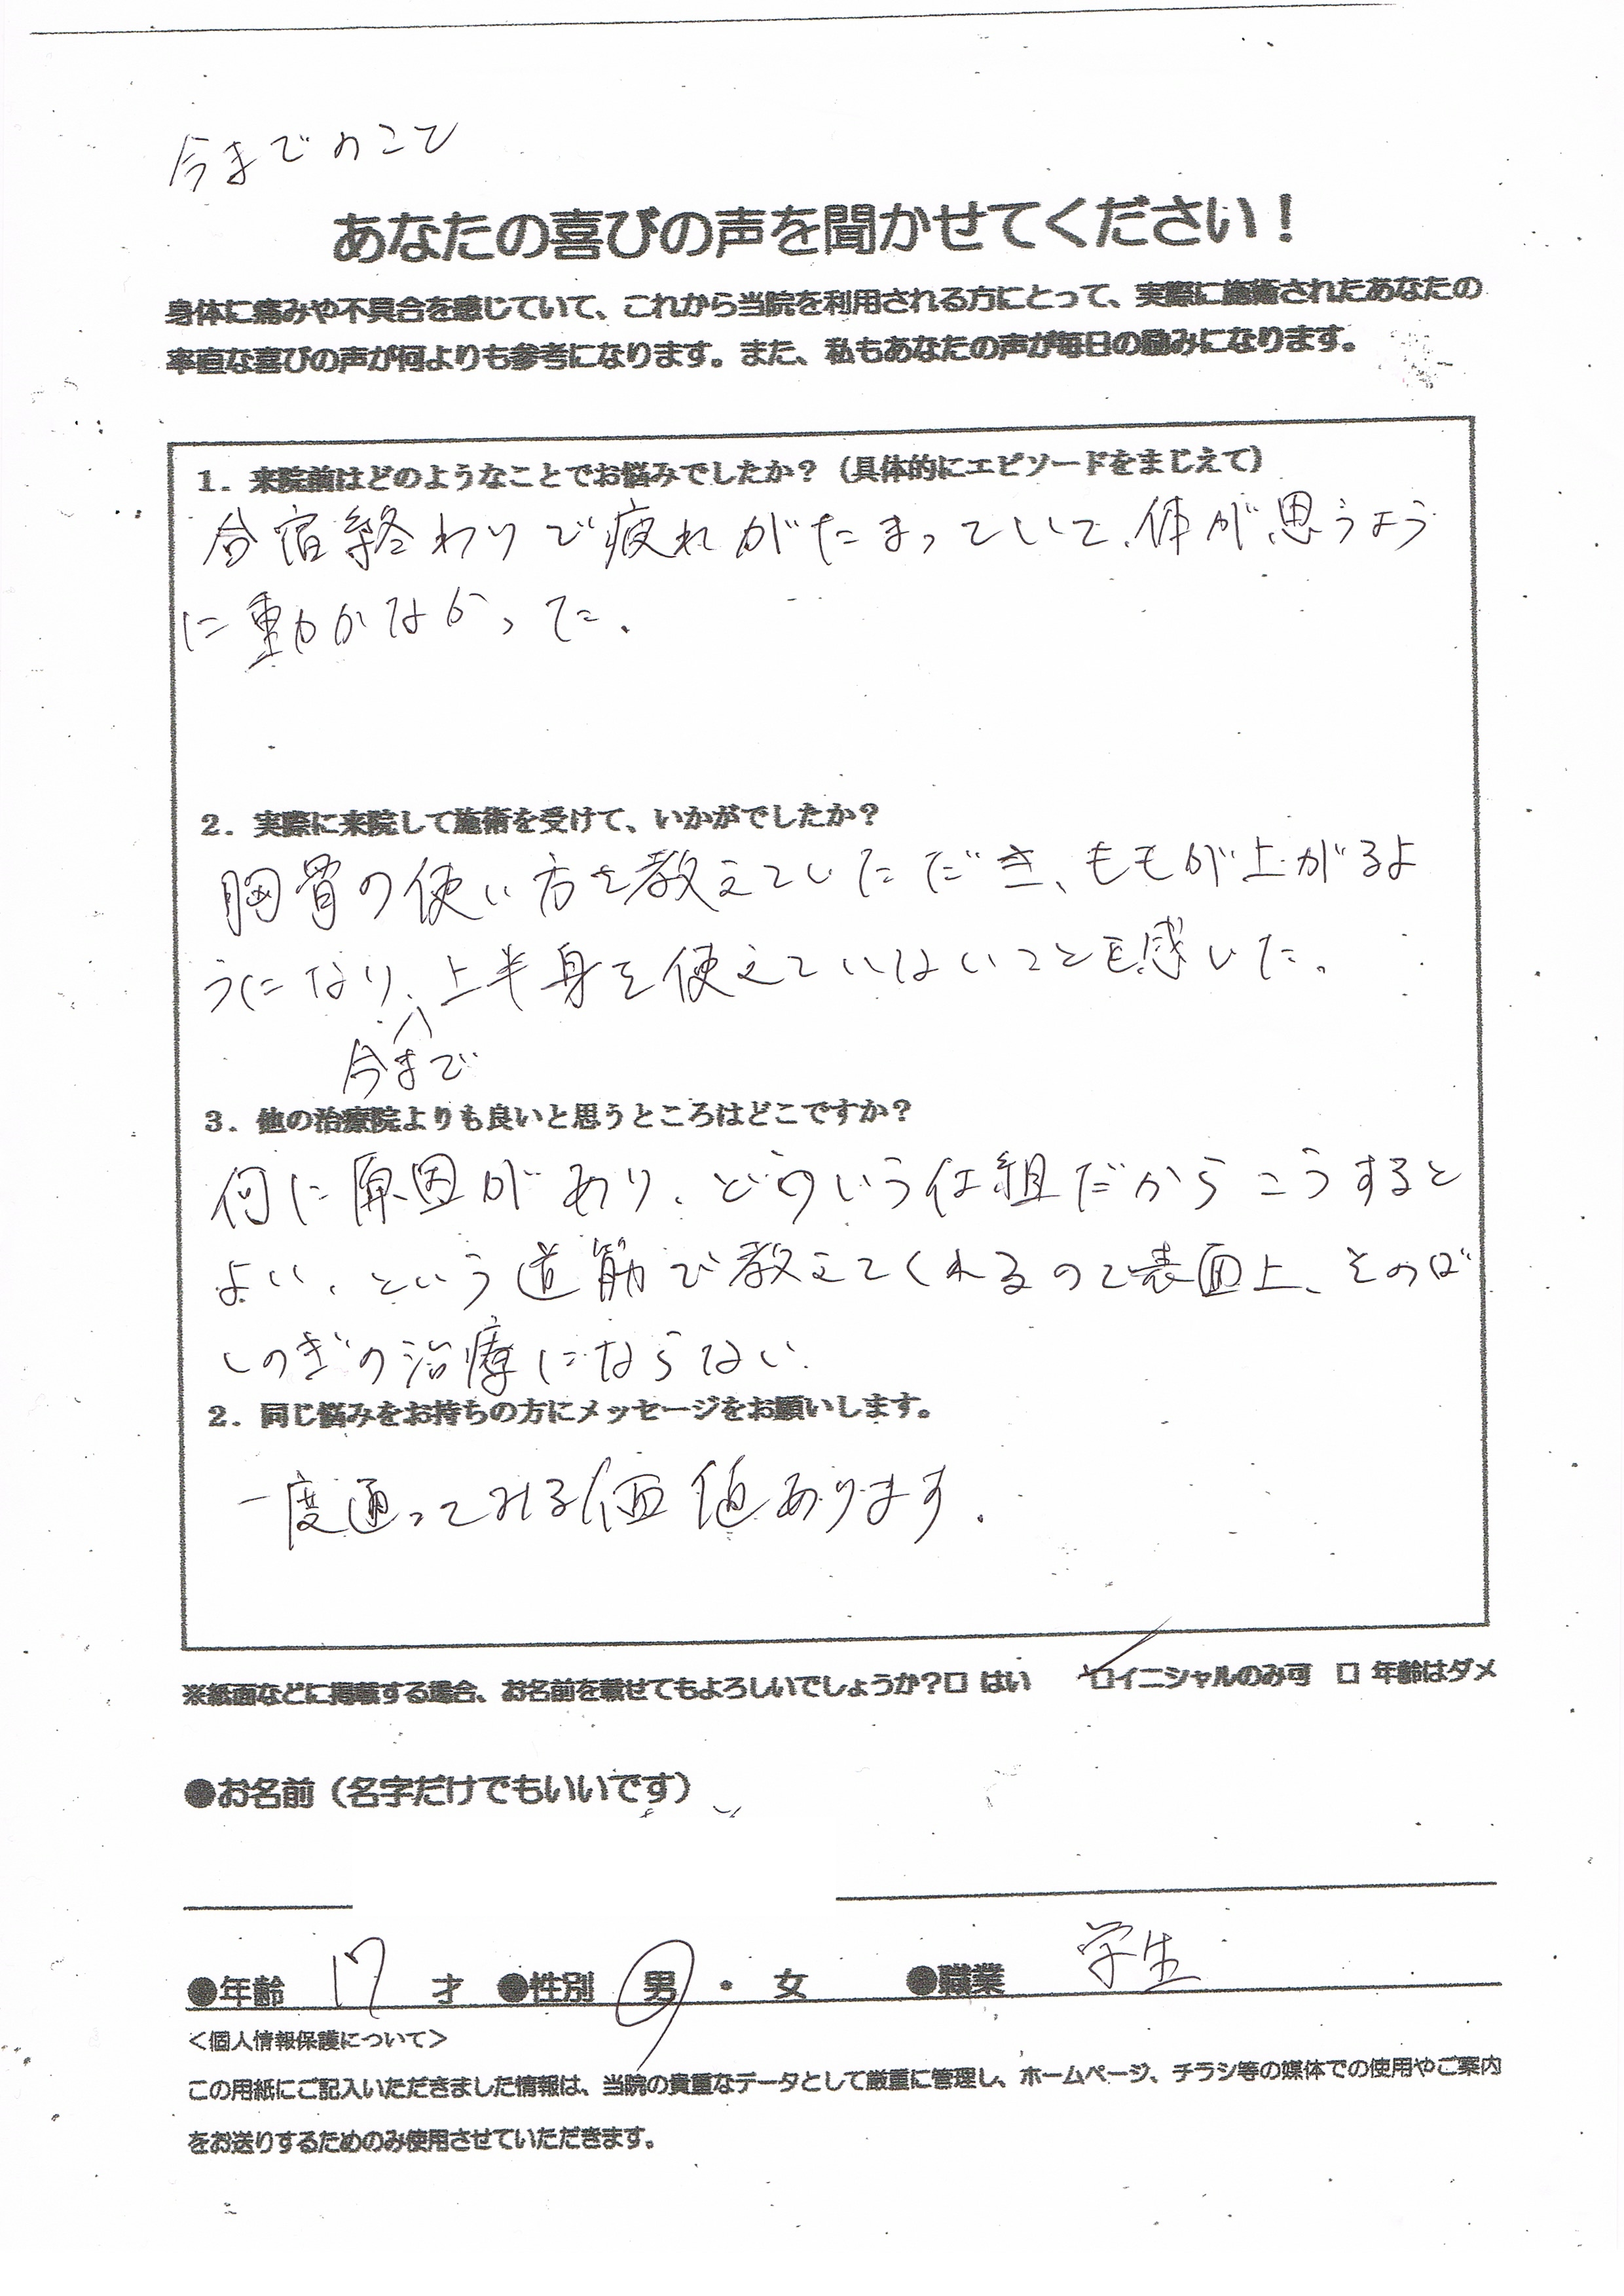 今までのこと
あなたの喜びの声を聞かせてください！
身体に痛みや不具合を感じていて、これから当院を利用される方にとって、実際に施術されたあなたの
率直な喜びの声が何よりも参考になります。また、私もあなたの声が毎日の励みになります。
1．来院前はどのようなことでお悩みでしたか？（具体的にエピソードをまじえて）
合宿終わりで疲れがたまっていて、体が思うよう
に動かなかった．
2．実際に来院して施術を受けて、いかがでしたか？
胸骨の使い方を教えていただき、ももが上がるよ
うになり、上半身を使えていないことを感じた。
今まで
3．他の治療院よりも良いと思うところはどこですか？
何に原因があり、どういう仕組だからこうすると
よい、という道筋で教えてくれるので表面上、そのば
しのぎの治療にならない．
2．同じ悩みをお持ちの方にメッセージをお願いします。
一度通ってみる価値あります．
※紙面などに掲載する場合、お名前を載せてもよろしいでしょうか？□ はい　□イニシャルのみ可　□ 年齢はダメ
●お名前（名字だけでもいいです）
●年齢　17　才　●性別　男　・　女　●職業　学生
＜個人情報保護について＞
この用紙にご記入いただきました情報は、当院の貴重なデータとして厳重に管理し、ホームページ、チラシ等の媒体での使用やご案内
をお送りするためのみ使用させていただきます。